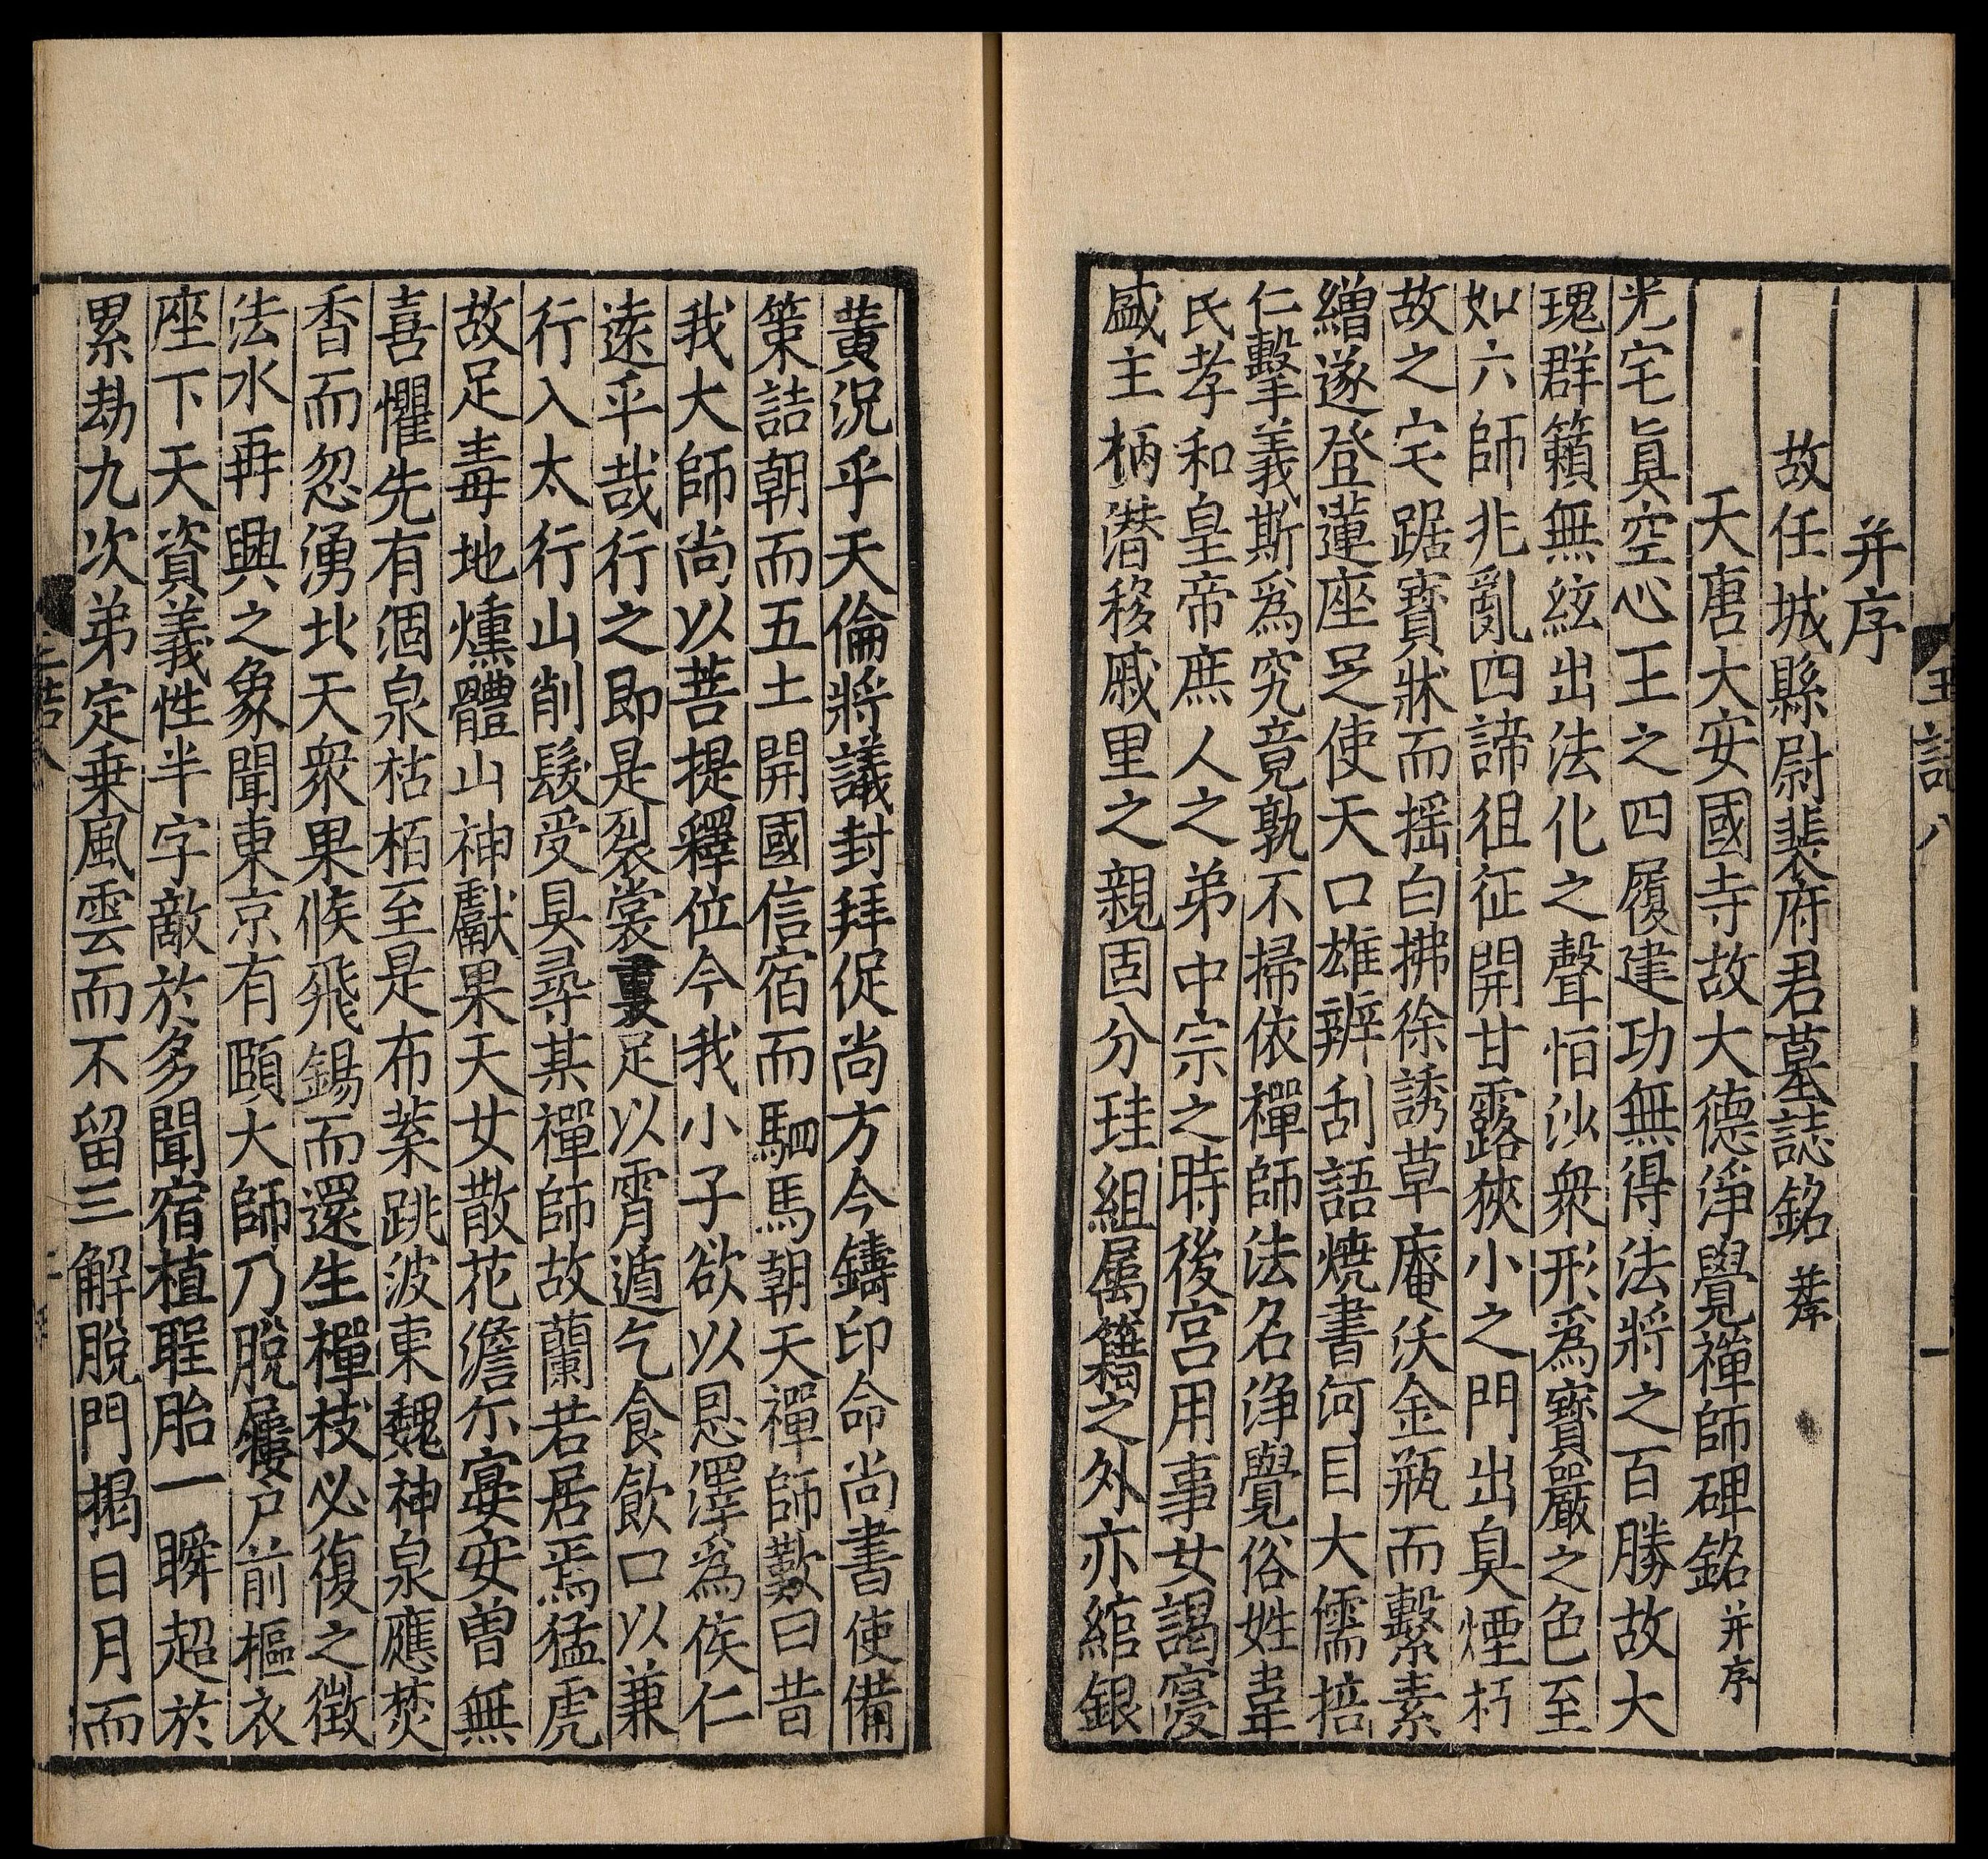 并序
故任城縣尉裴府君墓誌銘
天唐大安國寺故大德淨覺禪師碑銘并序
光宅眞空心王之四履建功無得法將之百勝故大
瑰群籟無絃出法化之聲恒沙衆形爲寶嚴之色至
如六師兆亂四諦徂征開甘露狹小之門出臭煙朽
故之宅踞寶牀而揺白拂徐誘草庵沃金瓶而繫素
繒遂登蓮座足使天口雄辨刮語燒書何目大儒掊
仁擊義斯爲究竟孰不掃依禪師法名浄覺俗姓韋
氏孝和皇帝庶人之弟中宗之時後宮用事女謁寖
盛主柄潛移戚里之親固分珪組属籍之外亦綰銀
黃況乎天倫將議封拜促尚方今鑄印命尚書使備
策詰朝而五土開國信宿而駟馬朝天禪師歎曰昔
我大師尚以菩提釋位今我小子欲以恩澤爲侯仁
遠乎哉行之即是裂裳裹足以宵遁乞食飲口以兼
行入太行山削髮受具尋某禪師故蘭若居焉猛虎
故足毒地燻體山神獻果天女散花澹尓宴安曽無
喜懼先有涸泉枯栢至是布葉跳波東魏神泉應焚
香而忽湧北天衆果候飛錫而還生禪枝必復之徵
法水再興之象聞東京有頤大師乃脫屨戶前樞衣
座下天資義性半字敵於多聞宿植聖胎一瞬超於
累劫九次弟定乗風雲而不留三解脫門揭日月而